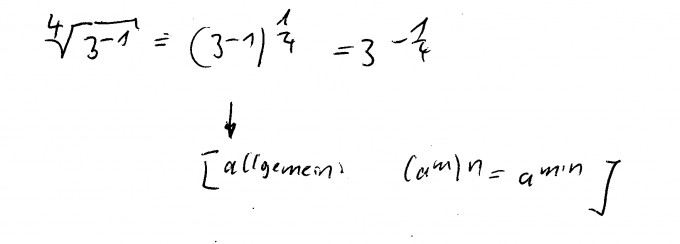 ⁴√3⁻¹ = (3⁻¹)^¼ = 3^-¼
[allgemein: (aᵐ)ⁿ = aᵐ·ⁿ]